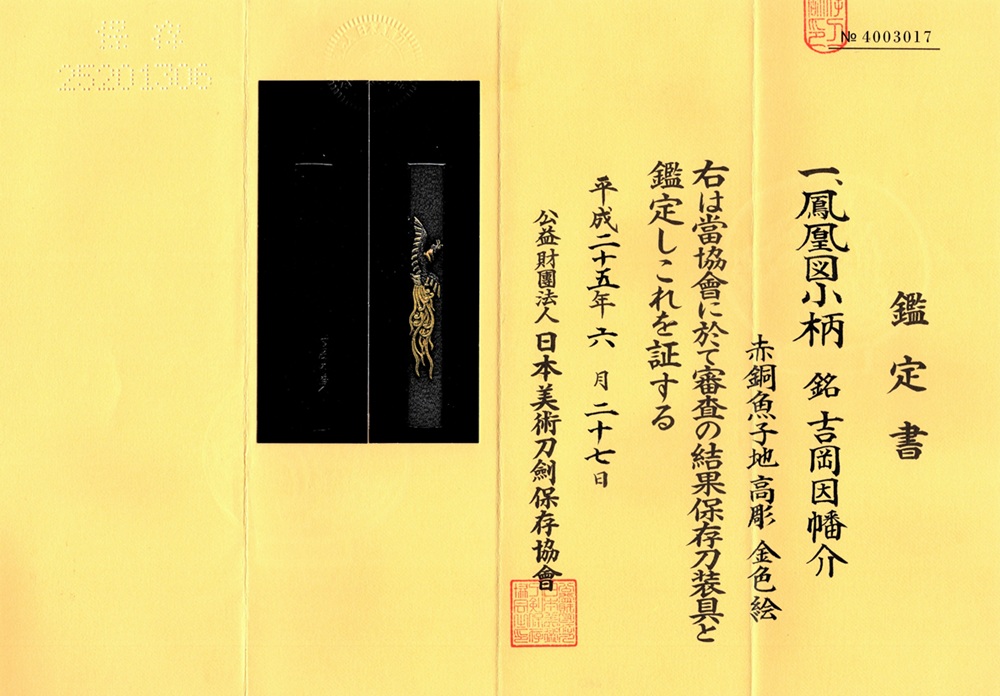 № 4003017
鑑定書
一、鳳凰図小柄 銘 吉岡因幡介
赤銅魚子地高彫 金色絵
右は當協會に於て審査の結果保存刀装具と
鑑定しこれを証する
平成二十五年六月二十七日
公益財團法人 日本美術刀劍保存協會
保存
25201306